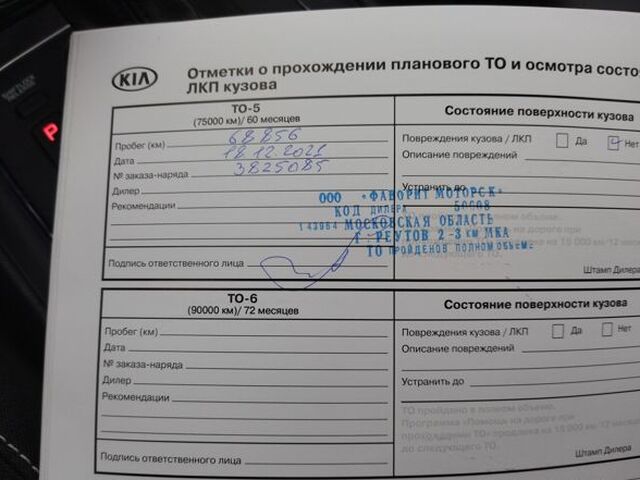 P
KIA
Отметки о прохождении планового ТО и осмотра состо
ЛКП кузова
ТО-5
(75000 км)/ 60 месяцев
Состояние поверхности кузова
Пробег (км) 68856
Повреждения кузова / ЛКП Да Нет
Дата 18.12.2021
Описание повреждений
№ заказа-наряда 3825085
Дилер
Устранить до
Рекомендации
ООО «ФАВОРИТ МОТОРСК»
КОД ДИЛЕРА
МОСКОВСКАЯ ОБЛАСТЬ
Г. РЕУТОВ 2-3 КМ МКА
ТО ПРОЙДЕНОВ ПОЛНОМ ОБЪЕМЕ
Подпись ответственного лица
Штамп Дилера
ТО-6
(90000 км)/ 72 месяцев
Состояние поверхности кузова
Пробег (км)
Повреждения кузова / ЛКП Да Нет
Дата
Описание повреждений
№ заказа-наряда
Дилер
Устранить до
Рекомендации
ТО пройдено в полном объеме.
Программа «Помощь на дороге при
прохождении ТО» продлена на 15 000 км/12 месяц
до следующего ТО.
Подпись ответственного лица
Штамп Дилера